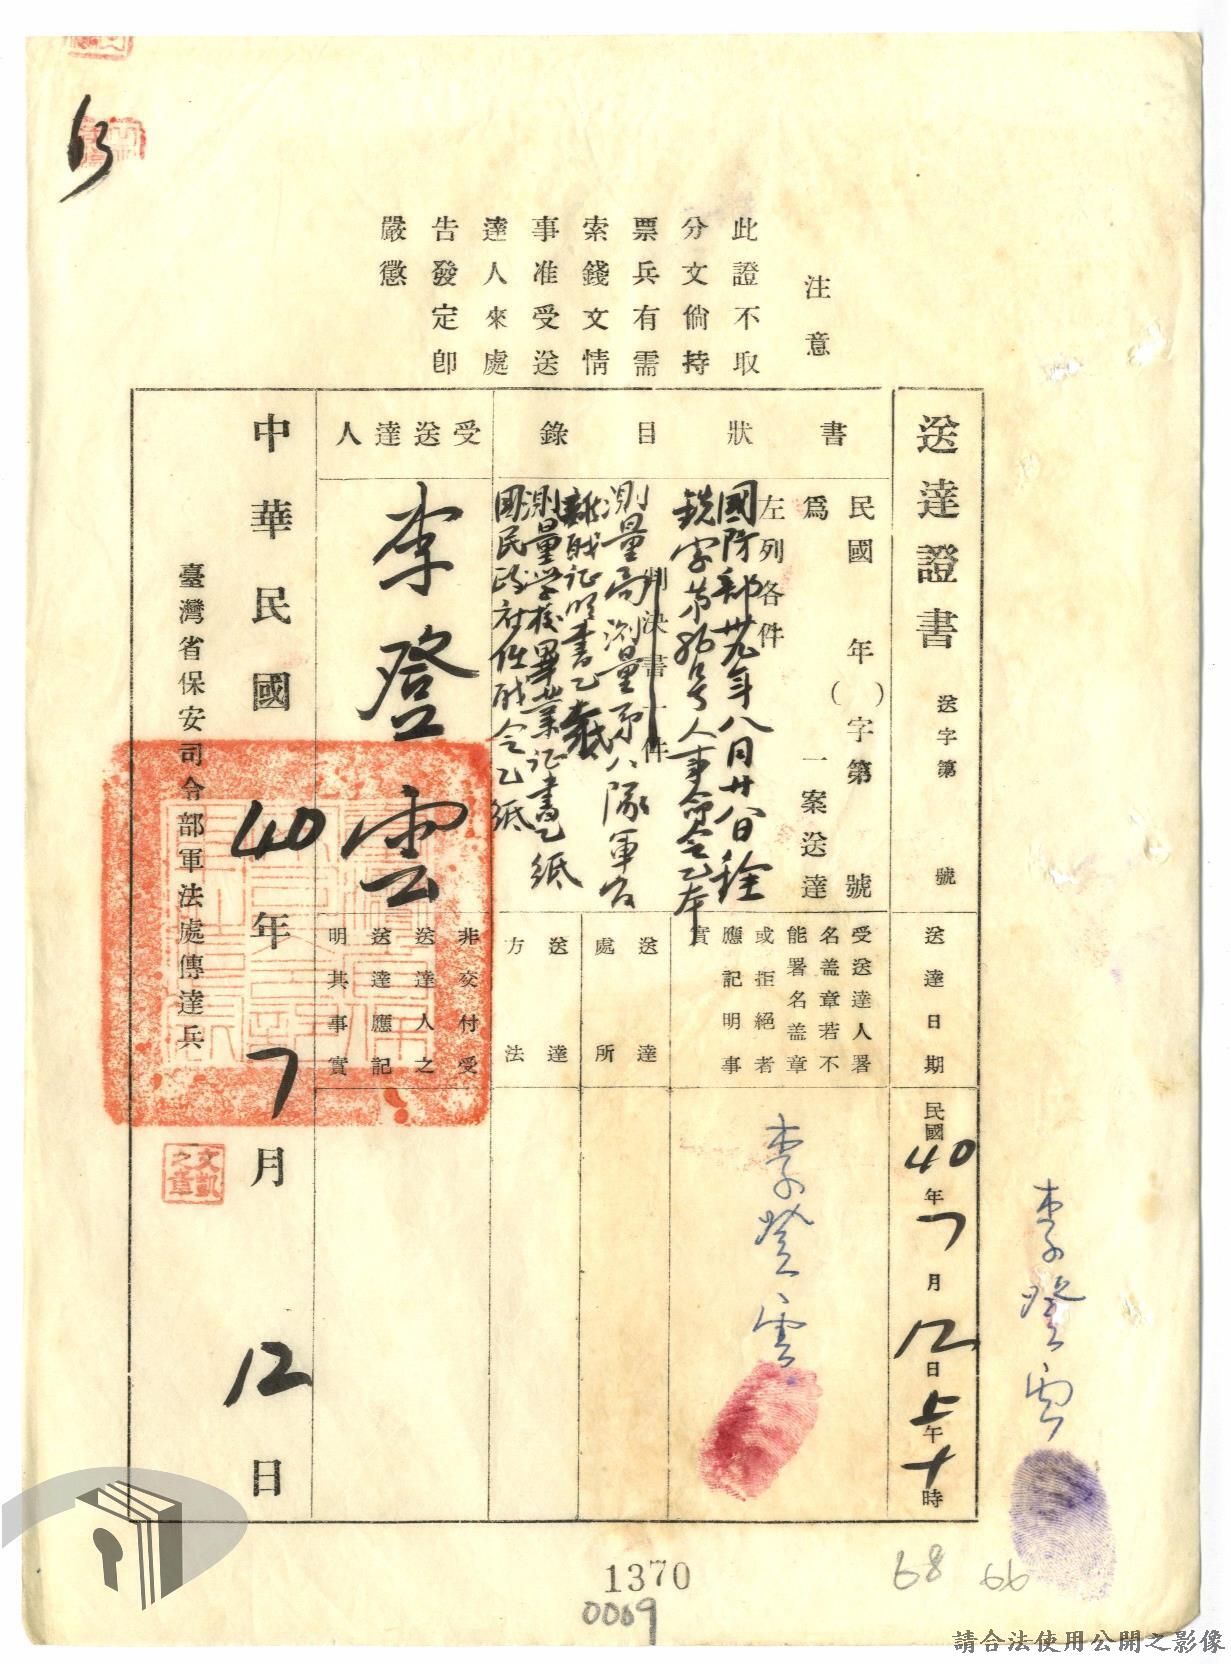 63
注意
此證不取
分文倘持
票兵有需
索錢文情
事准受送
達人來處
告發定卽
嚴懲
送達證書
送字第 號
書狀目錄
民國 年( )字第 號
為 一案送達
左列各件
判決書一件
國防部卅九年八月廿八日
人事命令乙本
測量局測量第八隊軍官
離職証明書乙紙
測量学校畢業证書乙紙
國民政府任职令乙紙
受送達人
李登雲
送達日期
民國40年7月12日上午十時
受送達人署
名盖章若不
能署名盖章
或拒絕者
應記明事
實
李登雲
送達處所
送達方法
非交付受
送達人之
送達應記
明其事實
中華民國40年7月12日
臺灣省保安司令部軍法處傳達兵
文凱之章
李登雲
1370
0009
68
66
請合法使用公開之影像